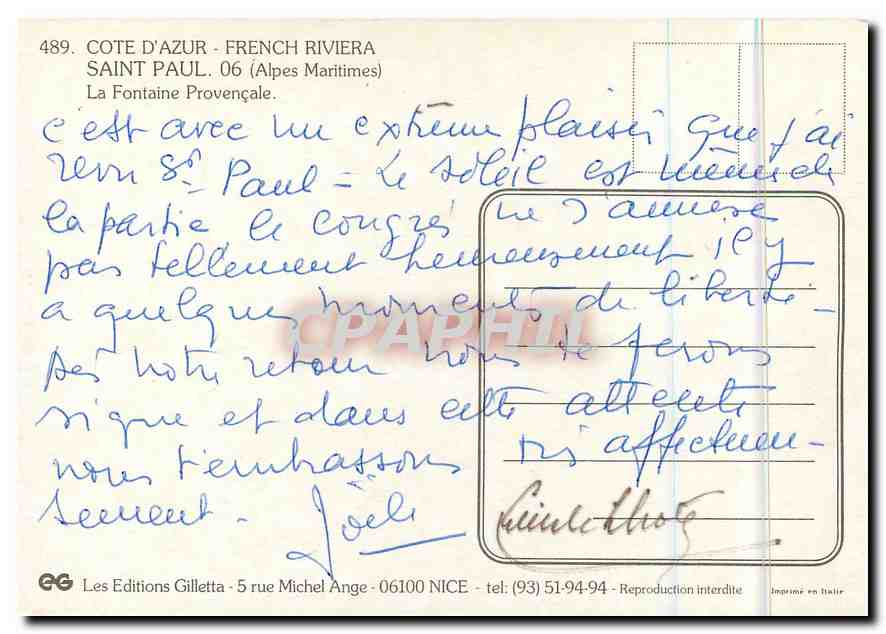 489. COTE D'AZUR - FRENCH RIVIERA
SAINT PAUL. 06 (Alpes Maritimes)
La Fontaine Provençale.
c'est avec un extrême plaisir que j'ai
revu St Paul = Le soleil est même de
la partie, le congrès ne s'annonce
pas tellement heureusement il y
a quelques moments de liberté -
Dès notre retour nous te ferons
signe et dans cette attente
nous t'embrassons très affectueu-
sement - Joëlle
CPAPHIL
EG Les Editions Gilletta - 5 rue Michel Ange - 06100 NICE - tel: (93) 51-94-94 - Reproduction interdite
Imprimé en Italie